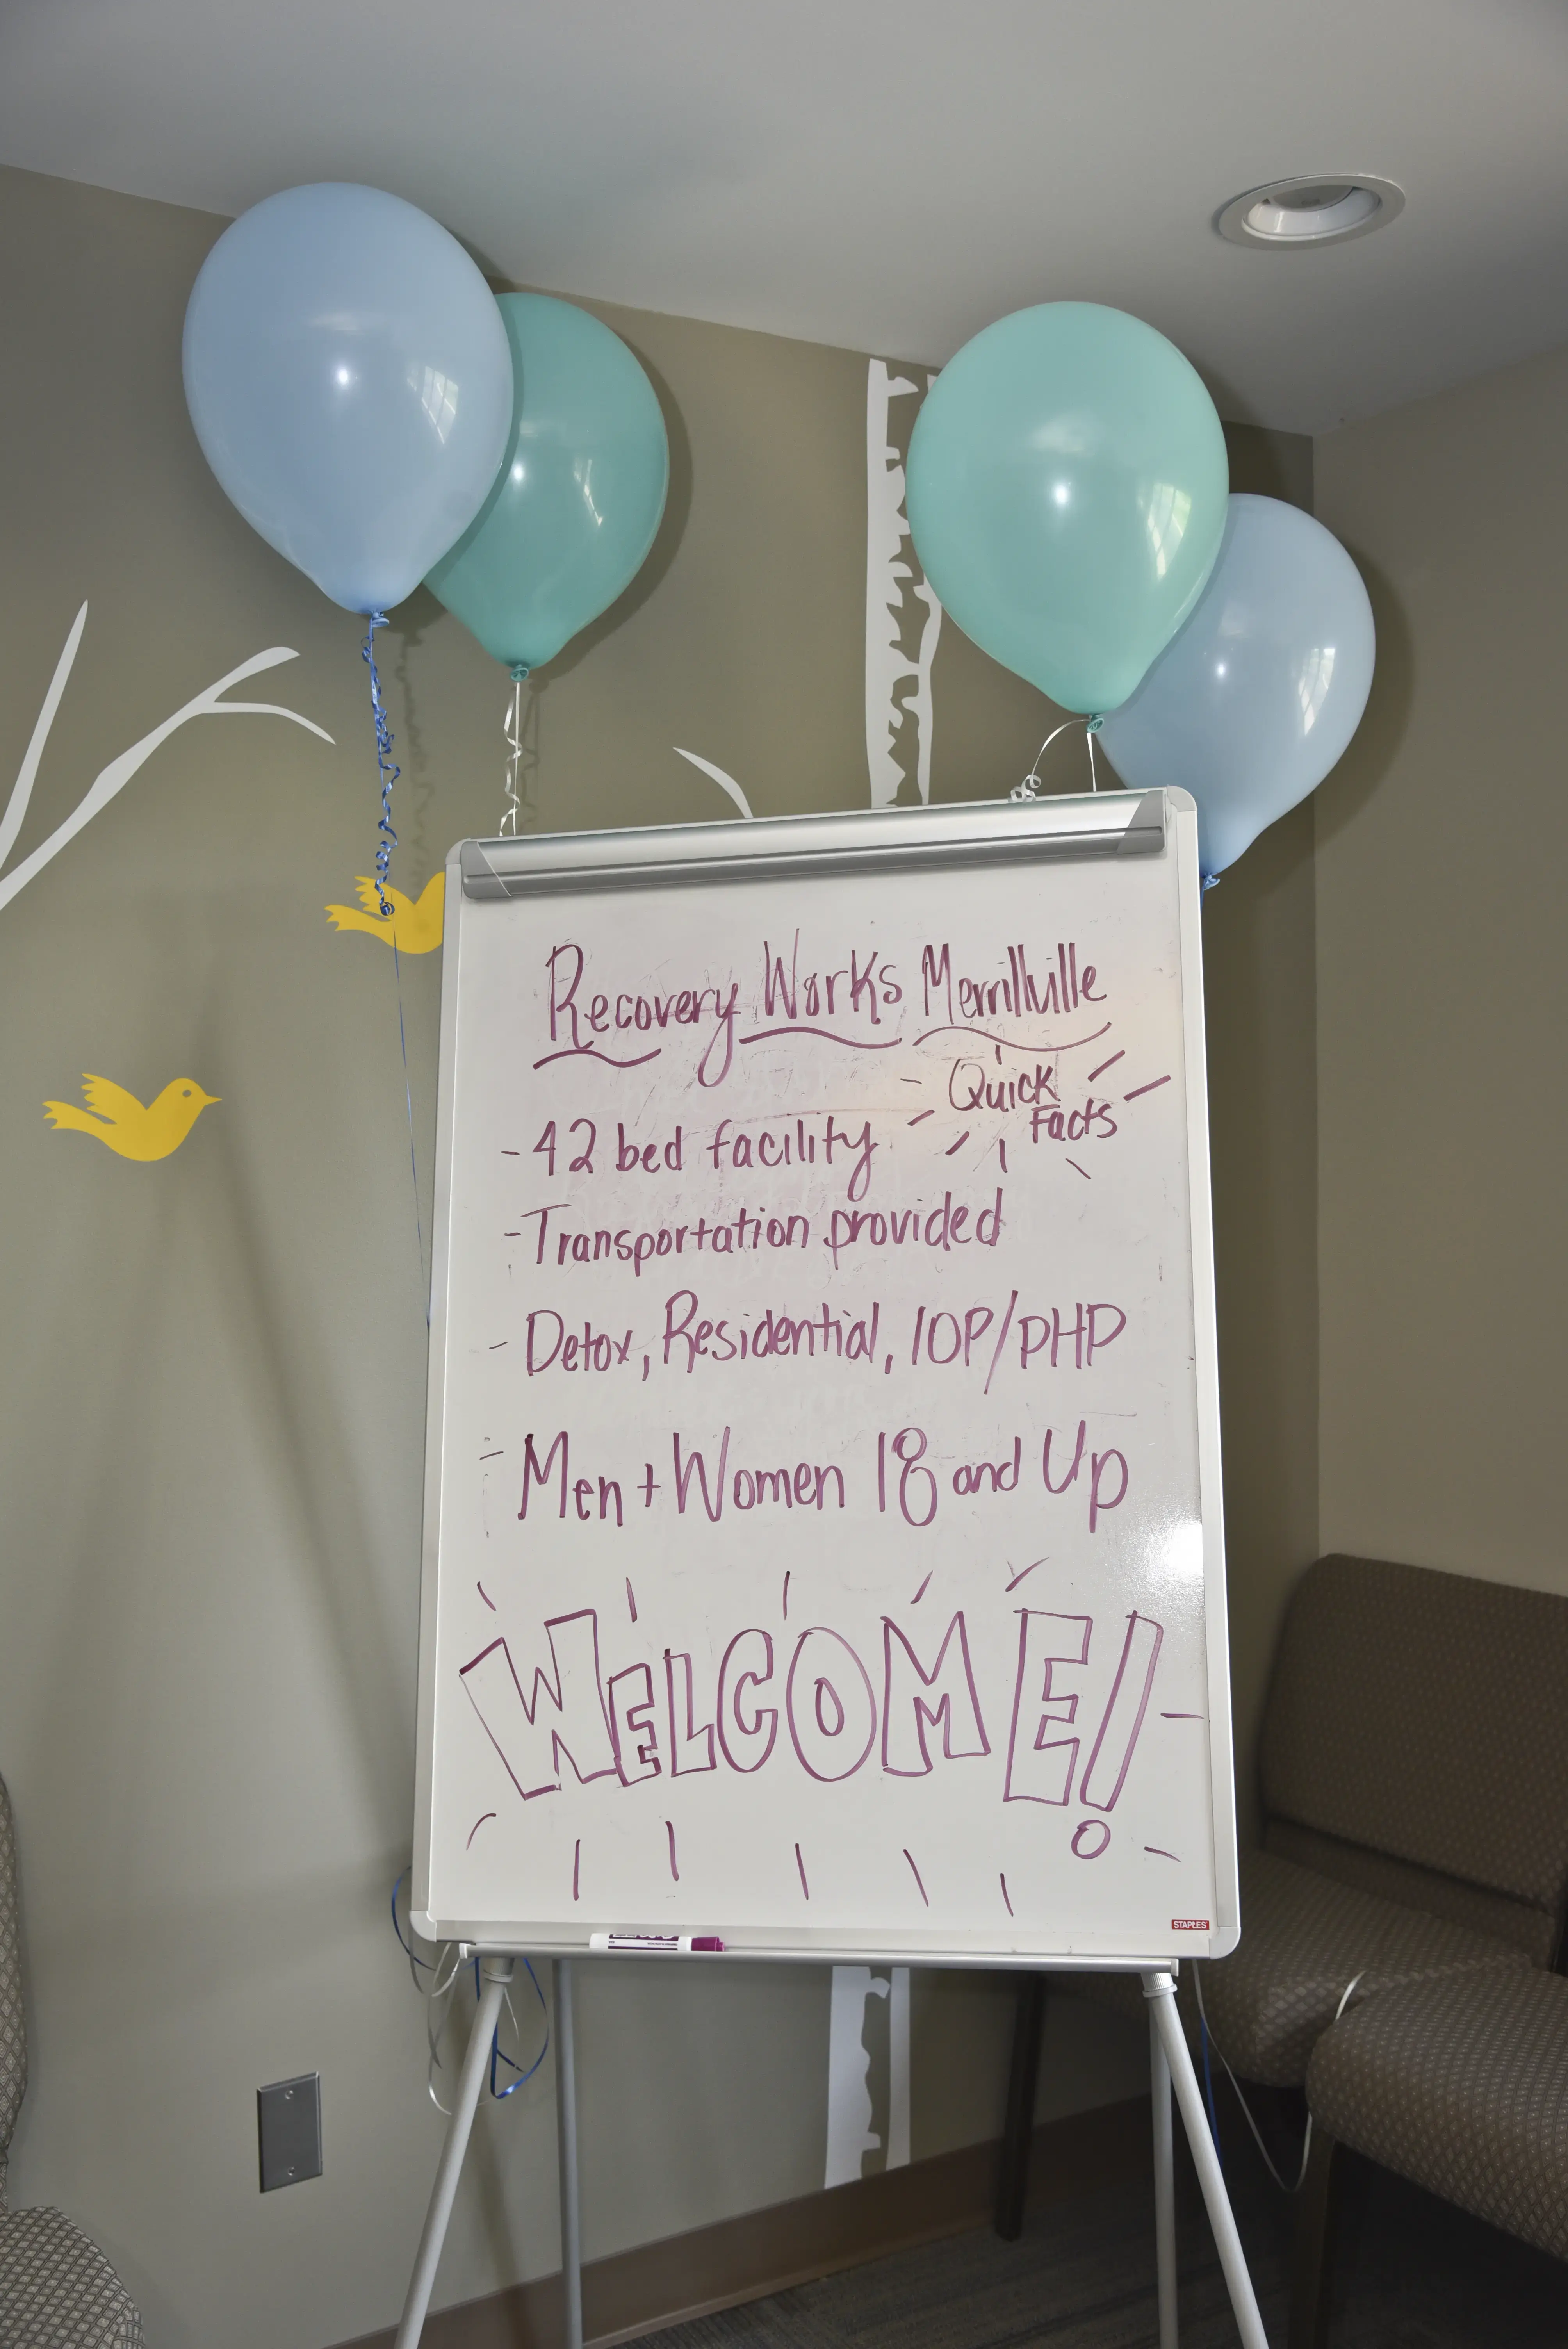 Recovery Works Merrillville
Quick
Facts
- 42 bed facility
- Transportation provided
- Detox, Residential, IOP/PHP
- Men + Women 18 and Up
WELCOME!
STAPLES